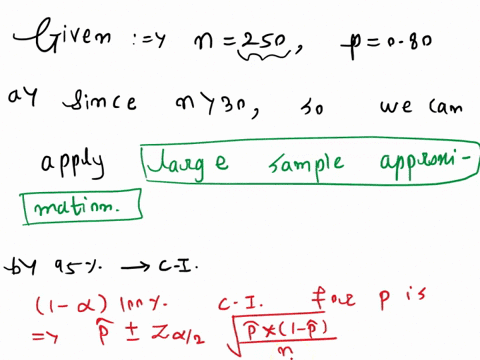 Given :=> n = 250, p = 0.80
a> since n > 30, so we can
apply large sample approxi-
mation.
b> 95% → C-I.
(1-α) 100% C-I. for p is
=> p̂ ± Zα/2 √(p̂ × (1-p̂) / n)